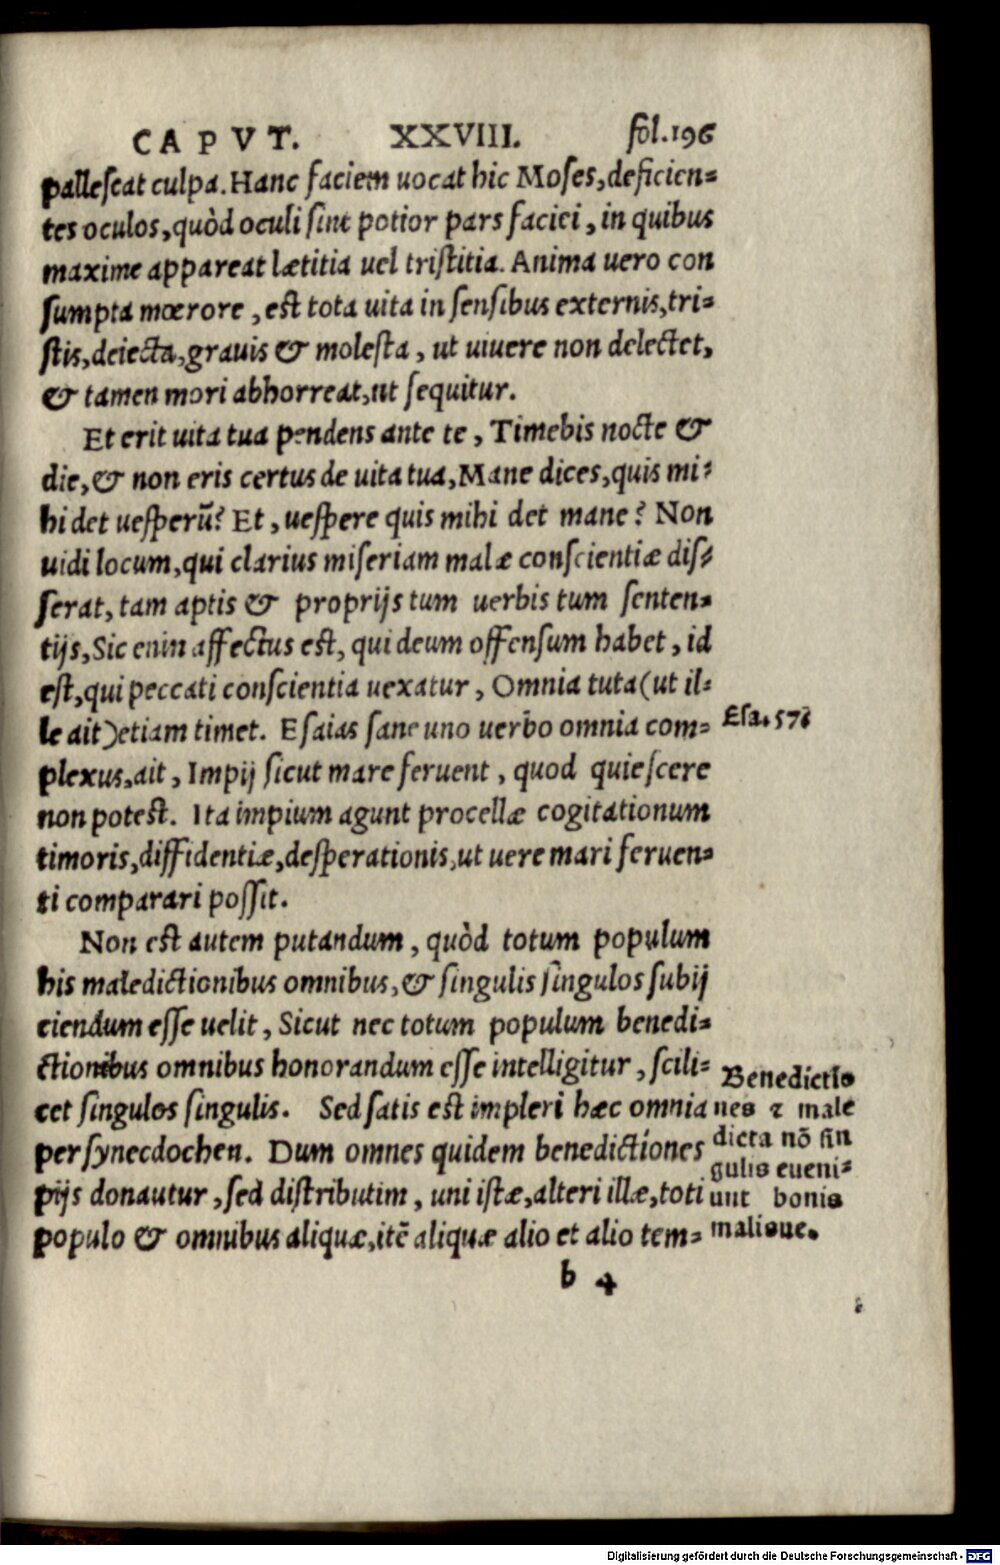 CAPVT. XXVIII. fol.196
palleſcat culpa. Hanc faciem uocat hic Moſes, deficien-
tes oculos, quòd oculi ſint potior pars faciei, in quibus
maxime appareat lætitia uel triſtitia. Anima uero con
ſumpta mœrore, eſt tota uita in ſenſibus externis, tri-
ſtis, deiecta, grauis & moleſta, ut uiuere non delectet,
& tamen mori abhorreat, ut ſequitur.
Et erit uita tua pendens ante te, Timebis nocte &
die, & non eris certus de uita tua, Mane dices, quis mi-
hi det ueſperũ? Et, ueſpere quis mihi det mane? Non
uidi locum, qui clarius miſeriam malæ conſcientiæ diſ-
ſerat, tam aptis & proprijs tum uerbis tum ſenten-
tijs, Sic enin affectus eſt, qui deum offenſum habet, id
eſt, qui peccati conſcientia uexatur, Omnia tuta (ut il-
le ait) etiam timet. Eſaias ſane uno uerbo omnia com- Eſa. 57.
plexus, ait, Impij ſicut mare feruent, quod quieſcere
non poteſt. Ita impium agunt procellæ cogitationum
timoris, diffidentiæ, deſperationis, ut uere mari feruen-
ti comparari poſſit.
Non eſt autem putandum, quòd totum populum
his maledictionibus omnibus, & ſingulis ſingulos ſubij
ciendum eſſe uelit, Sicut nec totum populum benedi-
ctionibus omnibus honorandum eſſe intelligitur, ſcili-
cet ſingulos ſingulis. Sed ſatis eſt impleri hæc omnia
per ſynecdochen. Dum omnes quidem benedictiones
pijs donautur, ſed diſtributim, uni iſtæ, alteri illæ, toti
populo & omnibus aliquæ, itẽ aliquæ alio et alio tem-
Benedictio
nes ⁊ male
dicta nõ ſin
gulis eueni-
unt bonis
malisue.
b 4
Digitalisierung gefördert durch die Deutsche Forschungsgemeinschaft - DFG